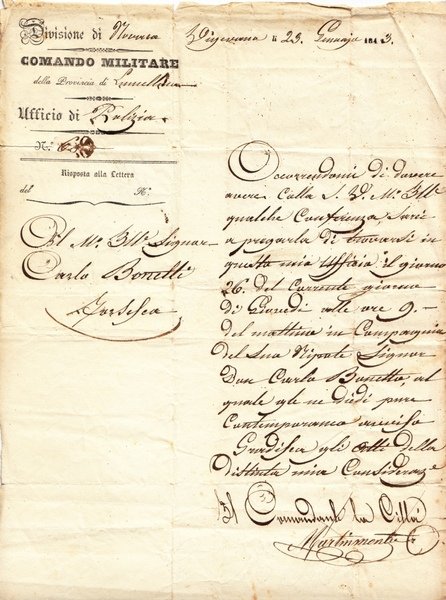 Divisione di Novara
COMANDO MILITARE
della Provincia di Lomellina
Ufficio di Polizia
N.º 68
Risposta alla Lettera
del N.º
Al M.º Ill.e Signor
Carlo Bonetti
Vigevano li 23. Gennajo 1843.
Occorrendomi di dovere
avere Colla S. V. M.º Ill.e
qualche Conferenza, Sarei
a pregarla di trovarsi in
questo mio Uffizio il giorno
26. del Corrente giorno
di Giovedì alle ore 9.
del mattino in Compagnia
del Suo Nipote Signor
Don Carlo Bonetto, al
quale gle ne diedi pure
Contemporaneo avviso
Gradisca gli Atti della
Distinta mia Considerazne
Il Comandante la Città